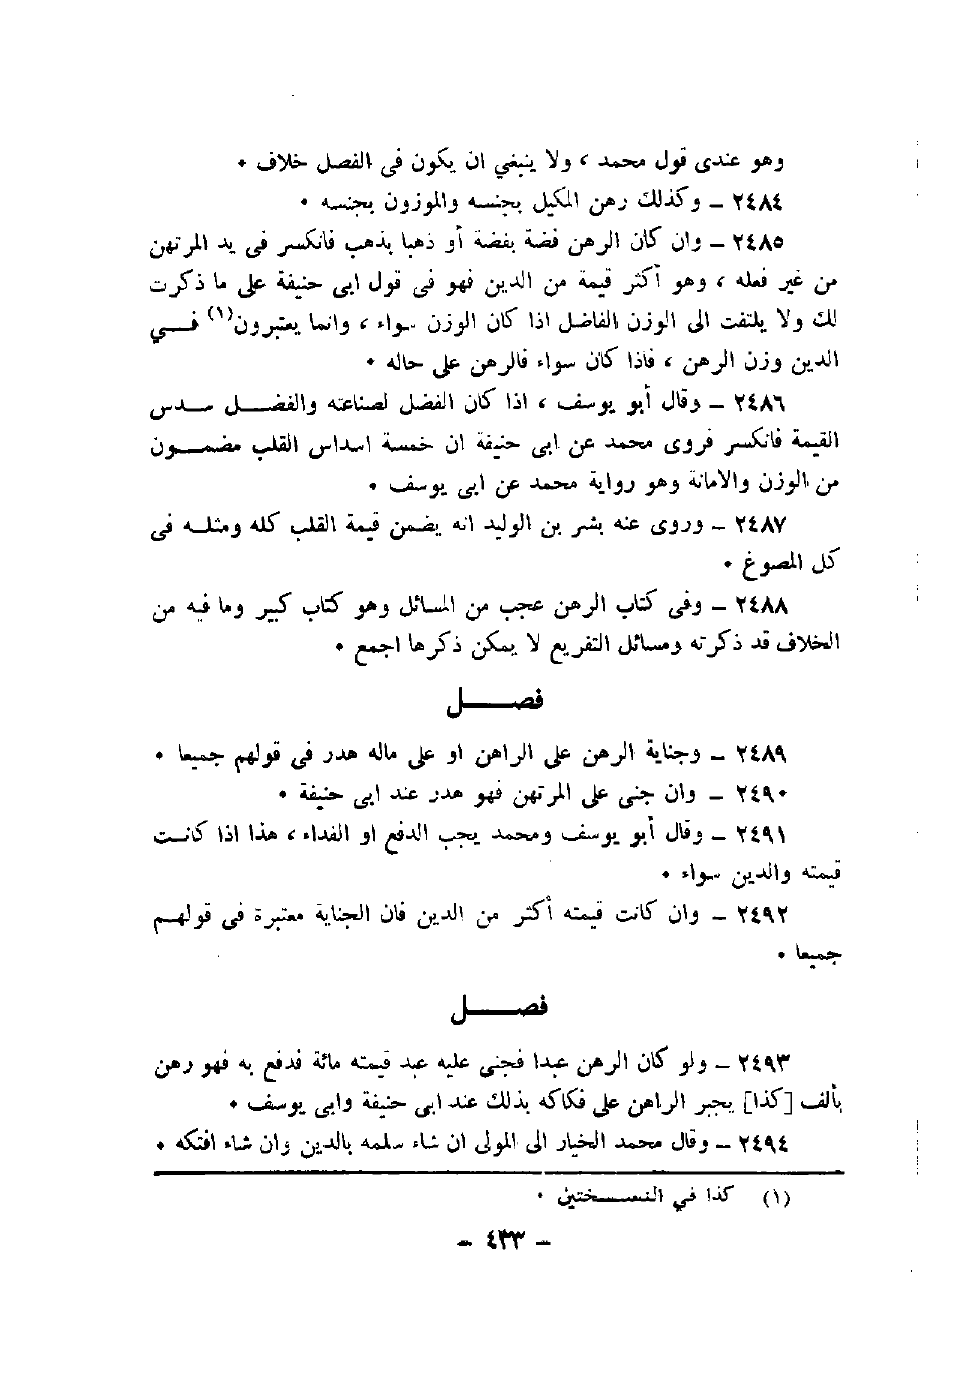 وهو عندى قول محمد ، ولا ينبغي ان يكون فى الفصل خلاف ٠
٢٤٨٤ – وكذلك رهن المكيل بجنسه والموزون بجنسه ٠
٢٤٨٥ – وان كان الرهن فضة بفضة أو ذهبا بذهب فانكسر فى يد المرتهن
من غير فعله ، وهو أكثر قيمة من الدين فهو فى قول ابى حنيفة على ما ذكرت
لك ولا يلتفت الى الوزن الفاضل اذا كان الوزن سواء ، وانما يعتبرون(١) فـــي
الدين وزن الرهن ، فاذا كان سواء فالرهن على حاله ٠
٢٤٨٦ – وقال أبو يوسف ، اذا كان الفضل لصناعته والفضـــل ســدس
القيمة فانكسر فروى محمد عن ابى حنيفة ان خمسة اسداس القلب مضمـــون
من الوزن والامانة وهو رواية محمد عن ابى يوسف ٠
٢٤٨٧ – وروى عنه بشر بن الوليد انه يضمن قيمة القلب كله ومثلــه فى
كل المصوغ ٠
٢٤٨٨ – وفى كتاب الرهن عجب من المسائل وهو كتاب كبير وما فيه من
الخلاف قد ذكرته ومسائل التفريع لا يمكن ذكرها اجمع ٠
فصـــــل
٢٤٨٩ – وجناية الرهن على الراهن او على ماله هدر فى قولهم جميعا ٠
٢٤٩٠ – وان جنى على المرتهن فهو هدر عند ابى حنيفة ٠
٢٤٩١ – وقال أبو يوسف ومحمد يجب الدفع او الفداء ، هذا اذا كانــت
قيمته والدين سواء ٠
٢٤٩٢ – وان كانت قيمته أكثر من الدين فان الجناية معتبرة فى قولهــم
جميعا ٠
فصـــــل
٢٤٩٣ – ولو كان الرهن عبدا فجنى عليه عبد قيمته مائة فدفع به فهو رهن
بألف [كذا] يجبر الراهن على فكاكه بذلك عند ابى حنيفة وابى يوسف ٠
٢٤٩٤ – وقال محمد الخيار الى المولى ان شاء سلمه بالدين وان شاء افتكه ٠
(١) كذا في النســـختين ٠
– ٤٣٣ –